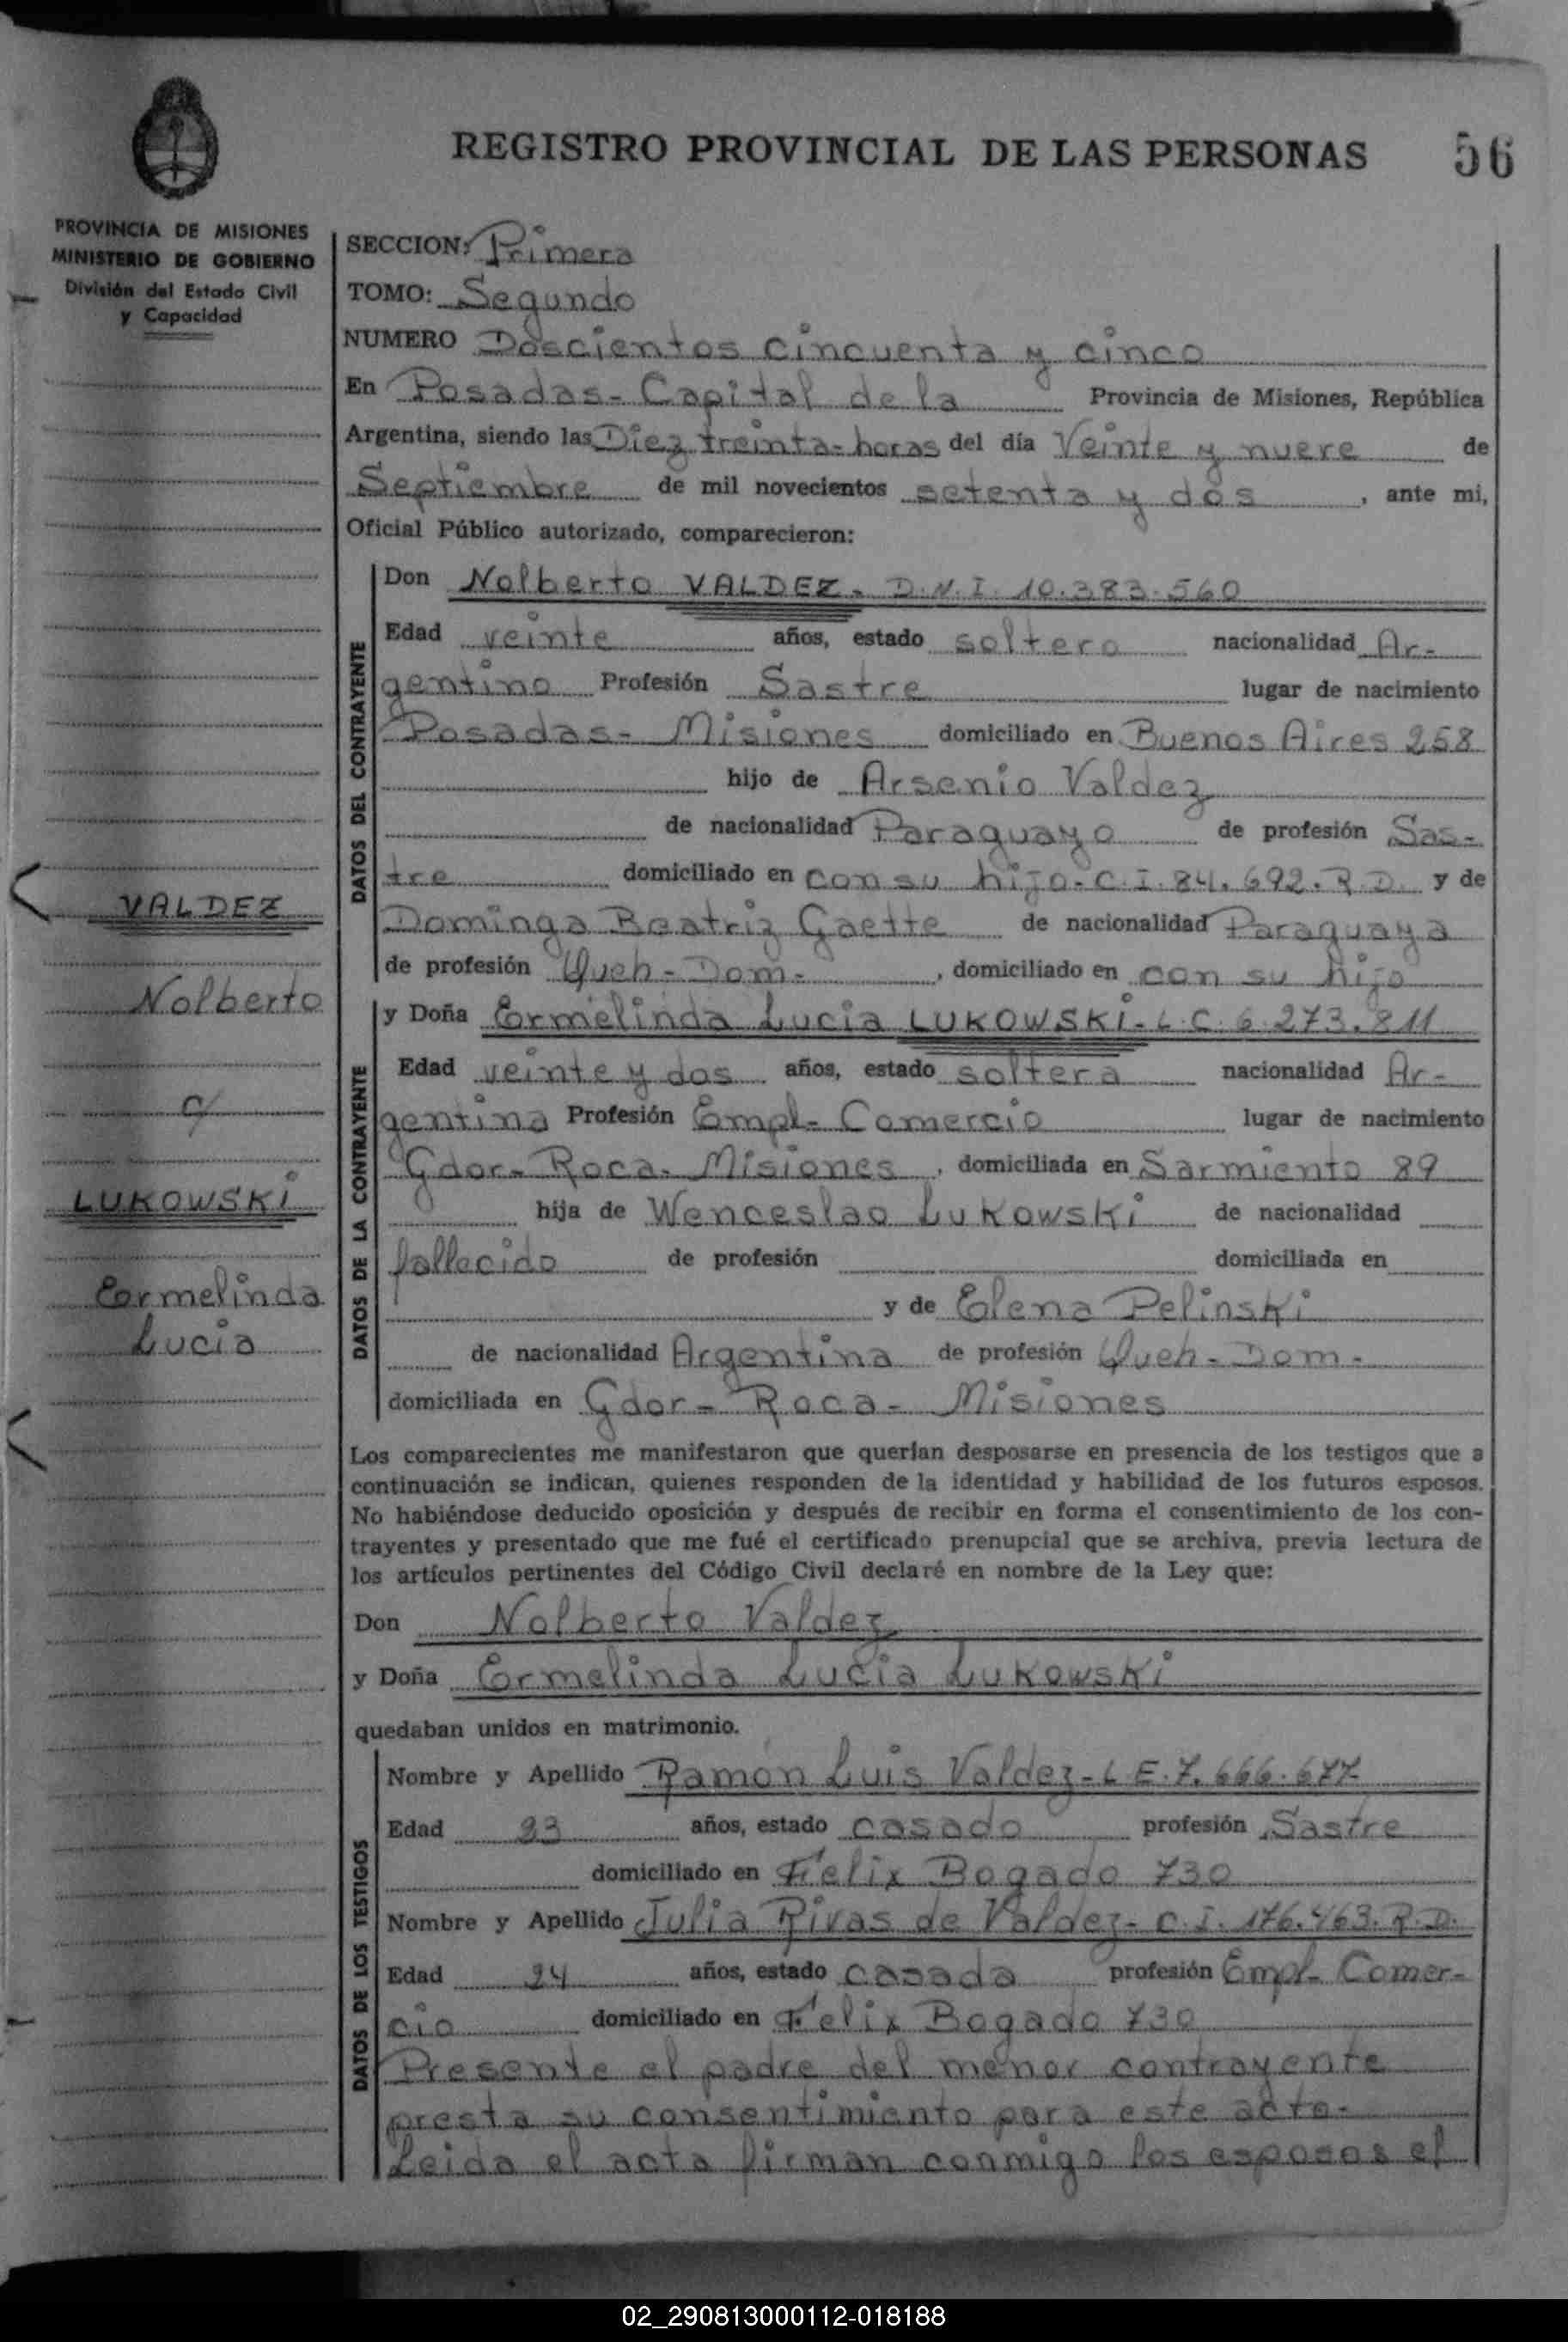 REGISTRO PROVINCIAL DE LAS PERSONAS 56
PROVINCIA DE MISIONES
MINISTERIO DE GOBIERNO
División del Estado Civil
y Capacidad
SECCION: Primera
TOMO: Segundo
NUMERO Doscientos cincuenta y cinco
En Posadas - Capital de la Provincia de Misiones, República
Argentina, siendo las Diez treinta - horas del día Veinte y nueve de
Septiembre de mil novecientos setenta y dos, ante mi,
Oficial Público autorizado, comparecieron:
DATOS DEL CONTRAYENTE
Don Nolberto VALDEZ - D.N.I. 10.383.560
Edad veinte años, estado soltero nacionalidad Ar-
gentino Profesión Sastre lugar de nacimiento
Posadas - Misiones domiciliado en Buenos Aires 258
hijo de Arsenio Valdez
de nacionalidad Paraguayo de profesión Sas-
tre domiciliado en con su hijo - C.I. 84.692. R.D. y de
Dominga Beatriz Gaette de nacionalidad Paraguaya
de profesión Queh - Dom -, domiciliado en con su hijo
DATOS DE LA CONTRAYENTE
y Doña Ermelinda Lucia LUKOWSKi - L.C. 6.273.811
Edad veinte y dos años, estado soltera nacionalidad Ar-
gentina Profesión Empl - Comercio lugar de nacimiento
Gdor - Roca - Misiones, domiciliada en Sarmiento 89
hija de Wenceslao Lukowski de nacionalidad
fallecido de profesión domiciliada en
y de Elena Pelinski
de nacionalidad Argentina de profesión Queh - Dom -
domiciliada en Gdor - Roca - Misiones
VALDEZ
Nolberto
c/
LUKOWSKi
Ermelinda
Lucia
Los comparecientes me manifestaron que querían desposarse en presencia de los testigos que a
continuación se indican, quienes responden de la identidad y habilidad de los futuros esposos.
No habiéndose deducido oposición y después de recibir en forma el consentimiento de los con-
trayentes y presentado que me fué el certificado prenupcial que se archiva, previa lectura de
los artículos pertinentes del Código Civil declaré en nombre de la Ley que:
Don Nolberto Valdez
y Doña Ermelinda Lucia Lukowski
quedaban unidos en matrimonio.
DATOS DE LOS TESTIGOS
Nombre y Apellido Ramón Luis Valdez - L E. 7.666.677-
Edad 23 años, estado casado profesión Sastre
domiciliado en Felix Bogado 730
Nombre y Apellido Julia Rivas de Valdez - C.I. 176.463. R.D.
Edad 24 años, estado casada profesión Empl - Comer-
cio domiciliado en Felix Bogado 730
Presente el padre del menor contrayente
presta su consentimiento para este acto -
Leida el acta firman conmigo los esposos el
02_290813000112-018188